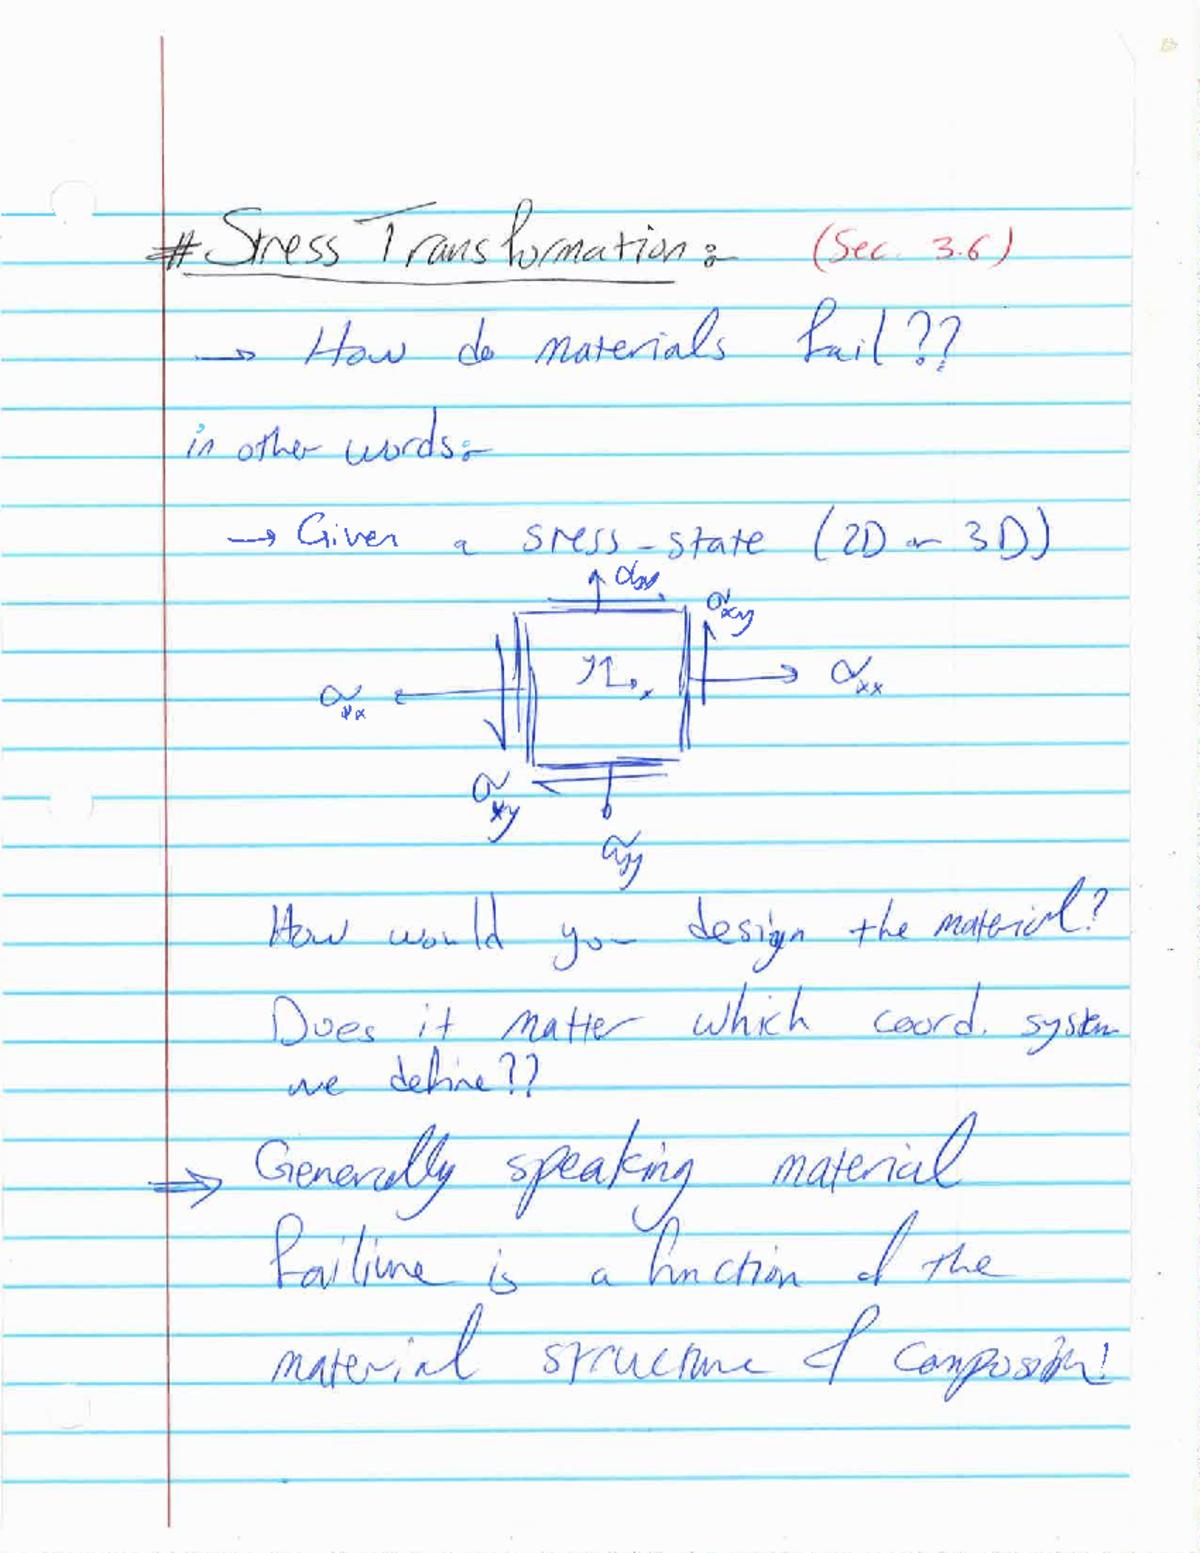 # Stress Transformation: (Sec. 3.6)
→ How do materials fail??
in other words:-
→ Given a stress-state (2D or 3D)
σyy
σxy
y x
σxx σxx
σxy
σyy
How would you design the material?
Does it matter which coord. system
we define??
⇒ Generally speaking material
failure is a function of the
material structure & composition!